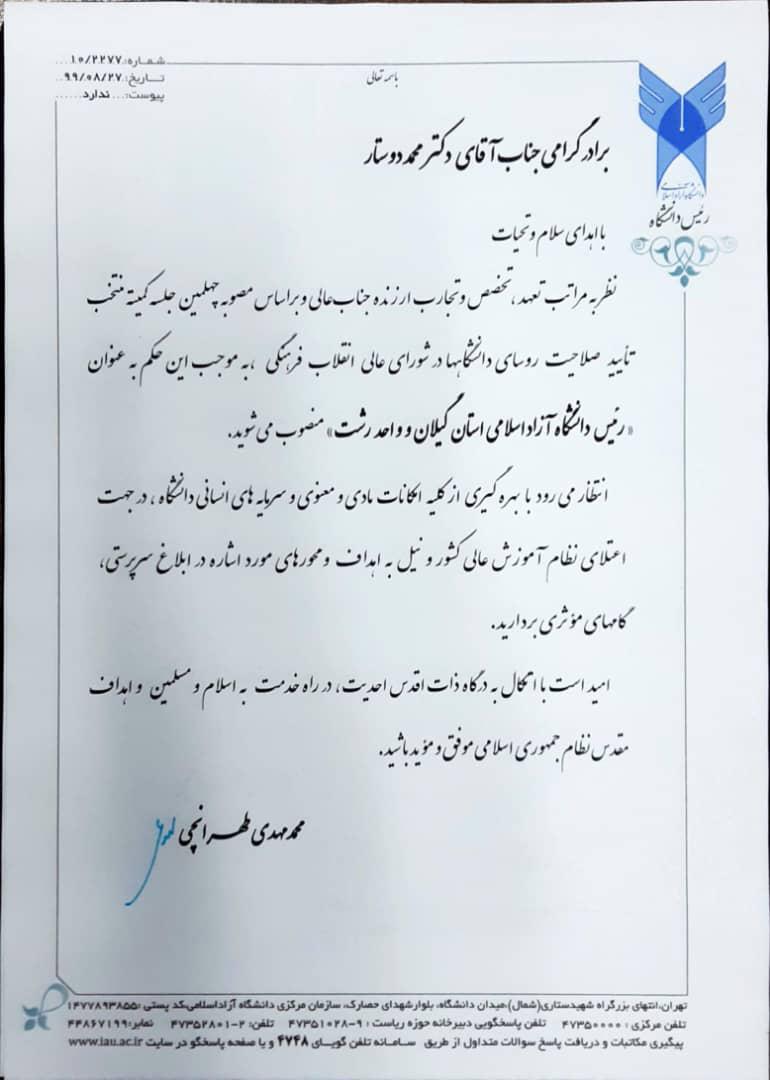 شماره: ۱۰/۲۲۷۷
تاریخ: ۹۹/۰۸/۲۷
پیوست: ندارد
باسمه تعالی
دانشگاه آزاد اسلامی
رئیس دانشگاه
برادر گرامی جناب آقای دکتر محمد دوستار
با اهدای سلام و تحیات
نظر به مراتب تعهد، تخصص و تجارب ارزنده جناب‌عالی و براساس مصوبه چهلمین جلسه کمیته منتخب
تأیید صلاحیت روسای دانشگاهها در شورای عالی انقلاب فرهنگی ،به موجب این حکم به عنوان
«رئیس دانشگاه آزاد اسلامی استان گیلان و واحد رشت» منصوب می شوید.
انتظار می رود با بهره گیری از کلیه امکانات مادی و معنوی و سرمایه های انسانی دانشگاه ، در جهت
اعتلای نظام آموزش عالی کشور و نیل به اهداف و محورهای مورد اشاره در ابلاغ سرپرستی،
گامهای مؤثری بردارید.
امید است با اتکال به درگاه ذات اقدس احدیت، در راه خدمت به اسلام و مسلمین و اهداف
مقدس نظام جمهوری اسلامی موفق و مؤید باشید.
محمدمهدی طهرانچی
تهران،انتهای بزرگراه شهیدستاری(شمال)،میدان دانشگاه، بلوارشهدای حصارک، سازمان مرکزی دانشگاه آزاداسلامی،کد پستی :۱۴۷۷۸۹۳۸۵۵
تلفن مرکزی : ۴۷۳۵۰۰۰۰ تلفن پاسخگویی دبیرخانه حوزه ریاست : ۹-۴۷۳۵۱۰۲۸ تلفن: ۲-۴۷۳۵۲۸۰۱ نمابر:۴۴۸۶۷۱۹۹
پیگیری مکاتبات و دریافت پاسخ سوالات متداول از طریق سامانه تلفن گویای ۴۷۴۸ و یا صفحه پاسخگو در سایت www.iau.ac.ir